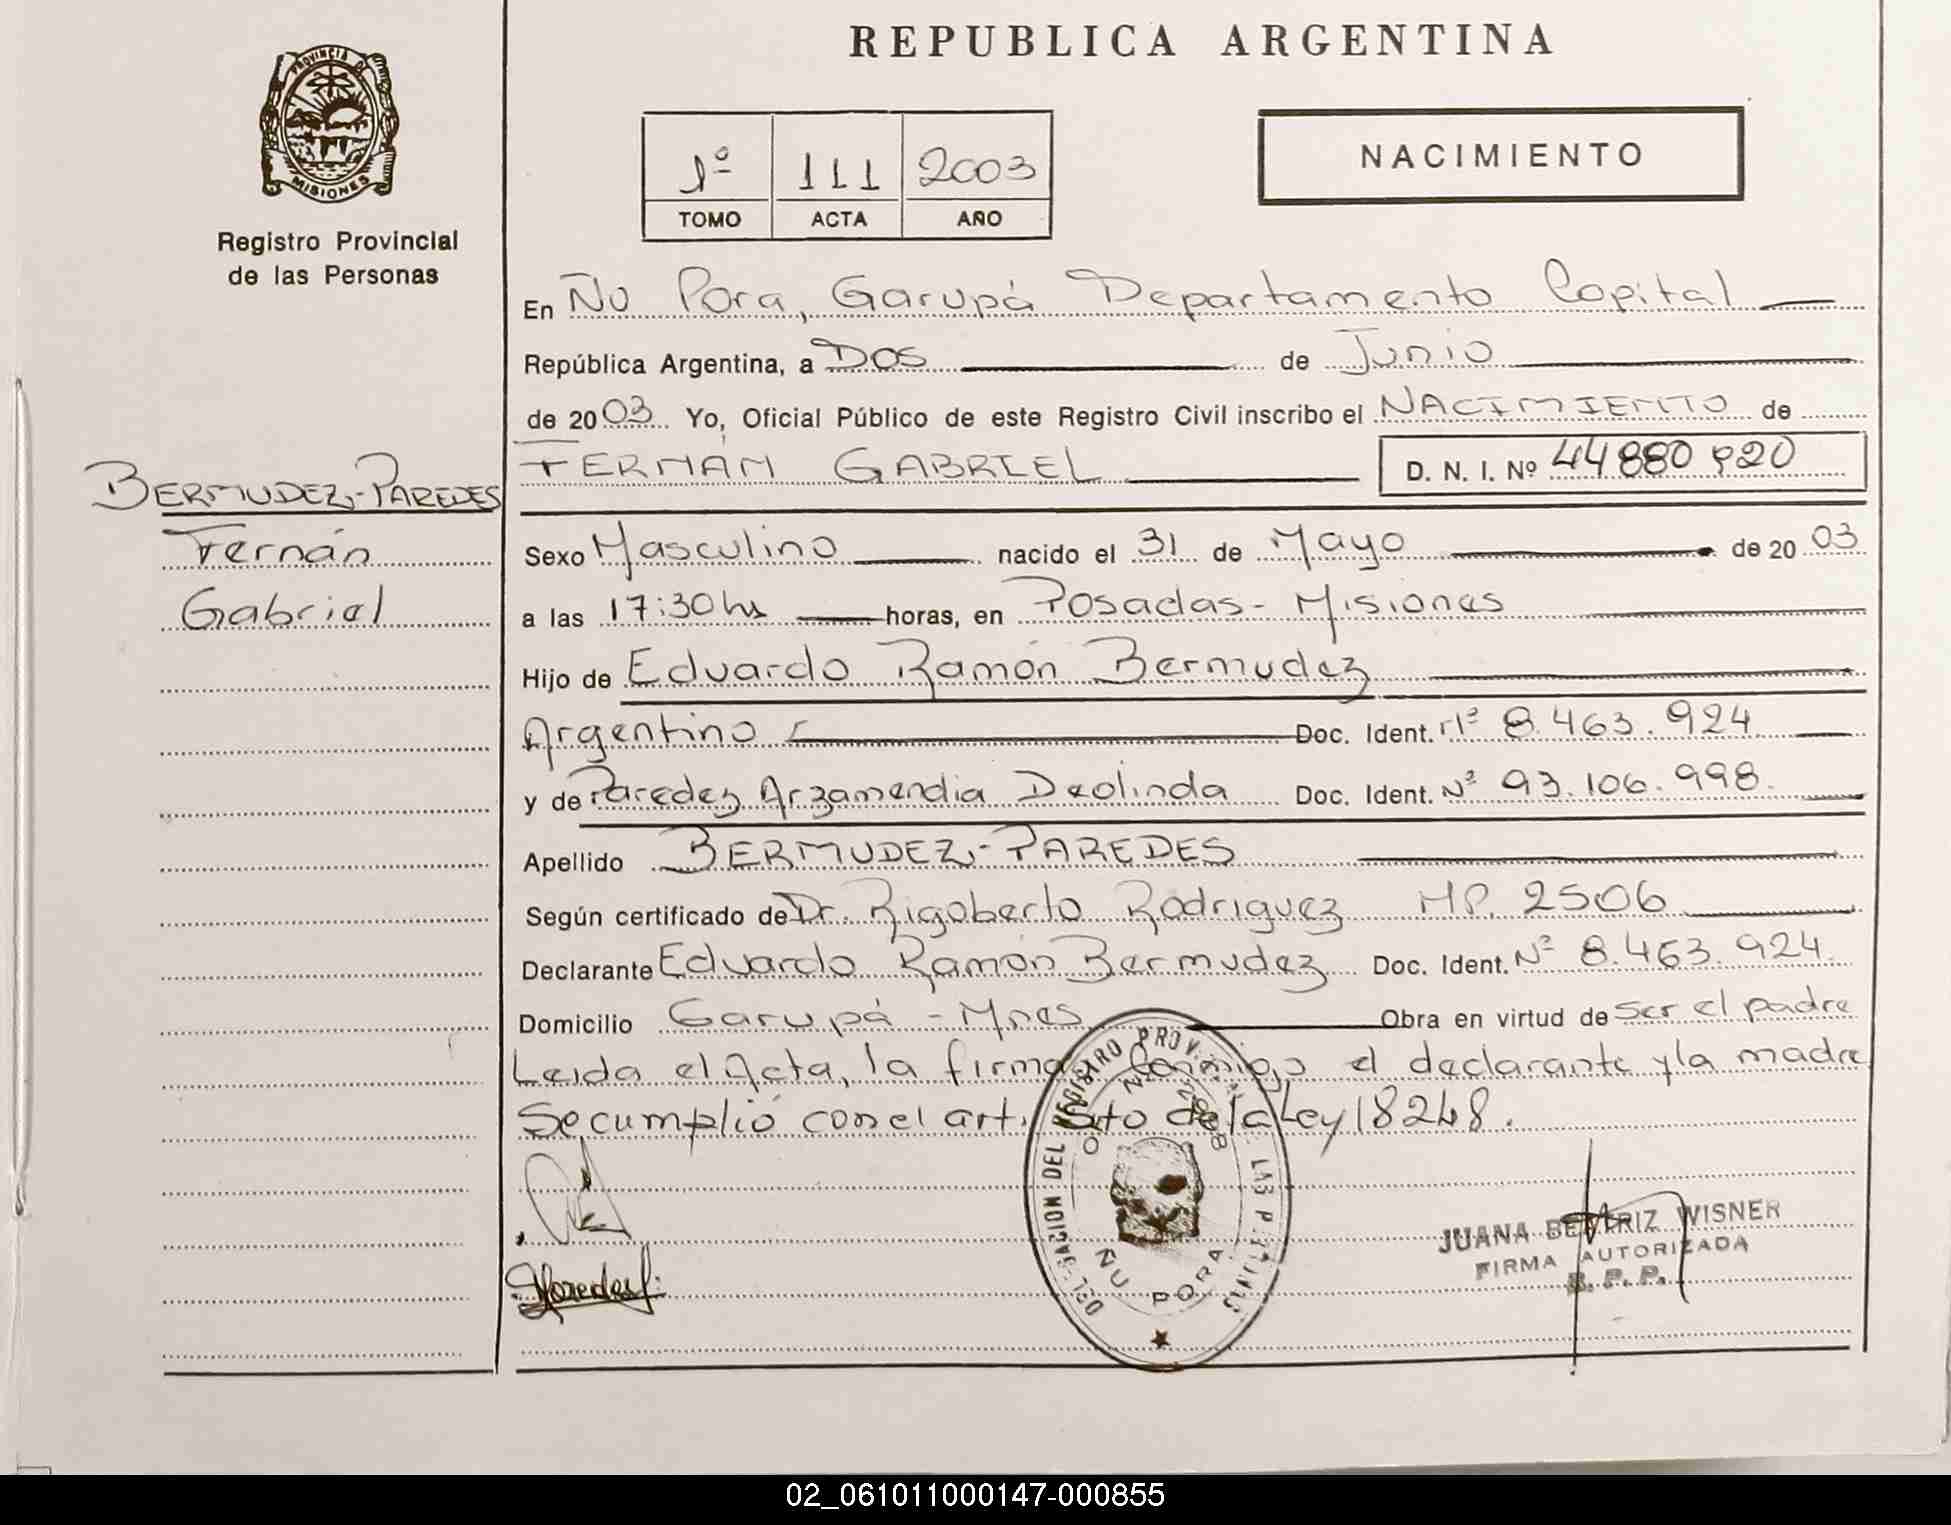 REPUBLICA ARGENTINA
PROVINCIA DE
MISIONES
Registro Provincial
de las Personas
1º 111 2003
TOMO ACTA AÑO
NACIMIENTO
En Ñu Pora, Garupá Departamento Capital
República Argentina, a Dos de Junio
de 2003 Yo, Oficial Público de este Registro Civil inscribo el NACIMIENTO de
FERNAN GABRIEL D. N. I. Nº 44880920
BERMUDEZ-PAREDES
Fernán
Gabriel
Sexo Masculino nacido el 31 de Mayo de 2003
a las 17:30 hs horas, en Posadas - Misiones
Hijo de Eduardo Ramón Bermudez
Argentino Doc. Ident. Nº 8.463.924
y de Paredez Arzamendia Deolinda Doc. Ident. Nº 93.106.998.
Apellido BERMUDEZ-PAREDES
Según certificado de Dr. Rigoberto Rodriguez MP. 2506
Declarante Eduardo Ramón Bermudez Doc. Ident. Nº 8.463.924.
Domicilio Garupá - Mnes Obra en virtud de ser el padre
Leida el Acta, la firma conmigo el declarante y la madre
Se cumplió con el art. 5to de la Ley 18248.
DELEGACION DEL REGISTRO PROVINCIAL DE LAS PERSONAS
ÑU PORA
JUANA BEATRIZ WISNER
FIRMA AUTORIZADA
R. P. P.
02_061011000147-000855